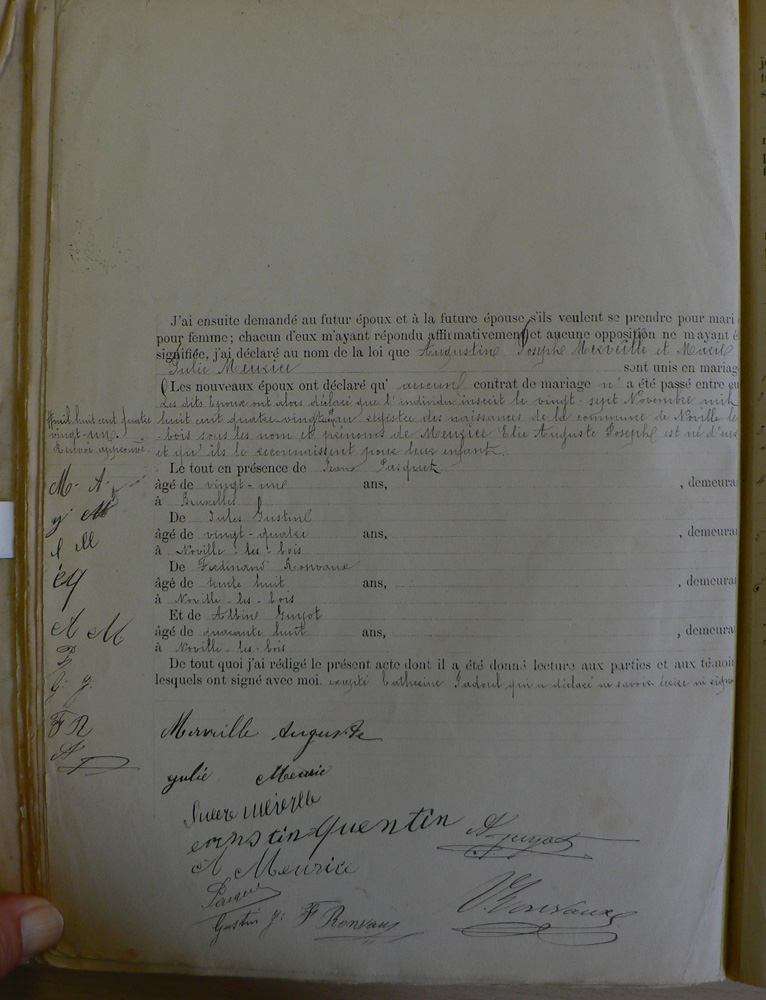 J'ai ensuite demandé au futur époux et à la future épouse s'ils veulent se prendre pour mari
pour femme; chacun d'eux m'ayant répondu affirmativement et aucune opposition ne m'ayant é
signifiée, j'ai déclaré au nom de la loi que Augustine Joseph Merveille et Marie
Julie Meurice sont unis en mariag
Les nouveaux époux ont déclaré qu' aucun contrat de mariage n' a été passé entre eu
Les dits époux ont alors déclaré que l'individu inscrit le vingt-sept Novembre mil
huit cent quatre-vingt au registre des naissances de la commune de Noville les
bois sous les nom et prénoms de Meurice Elie Auguste Joseph est né d'eux
et qu'ils le reconnaissent pour leur enfant.
mil huit cent quatre
vingt-un.
Renvoi approuvé
Le tout en présence de Jean Pasquet
âgé de vingt-une ans, , demeura
à Bruxelles
De Jules Gustin
âgé de vingt-quatre ans, , demeura
à Noville-les-bois
De Ferdinand Ronvaux
âgé de trente huit ans, , demeura
à Noville-les-bois
Et de Albin Guyot
âgé de quarante huit ans, , demeura
à Noville-les-bois
De tout quoi j'ai rédigé le présent acte dont il a été donné lecture aux parties et aux témoin
lesquels ont signé avec moi. excepté Catherine Jadoul qui a déclaré ne savoir écrire ni signe
M. A.
j M
A M
G. J.
F R
Merveille Auguste
julie Meurice
Quentin
A Guyot
A Meurice
Gustin J: F Ronvaux
Ronvaux